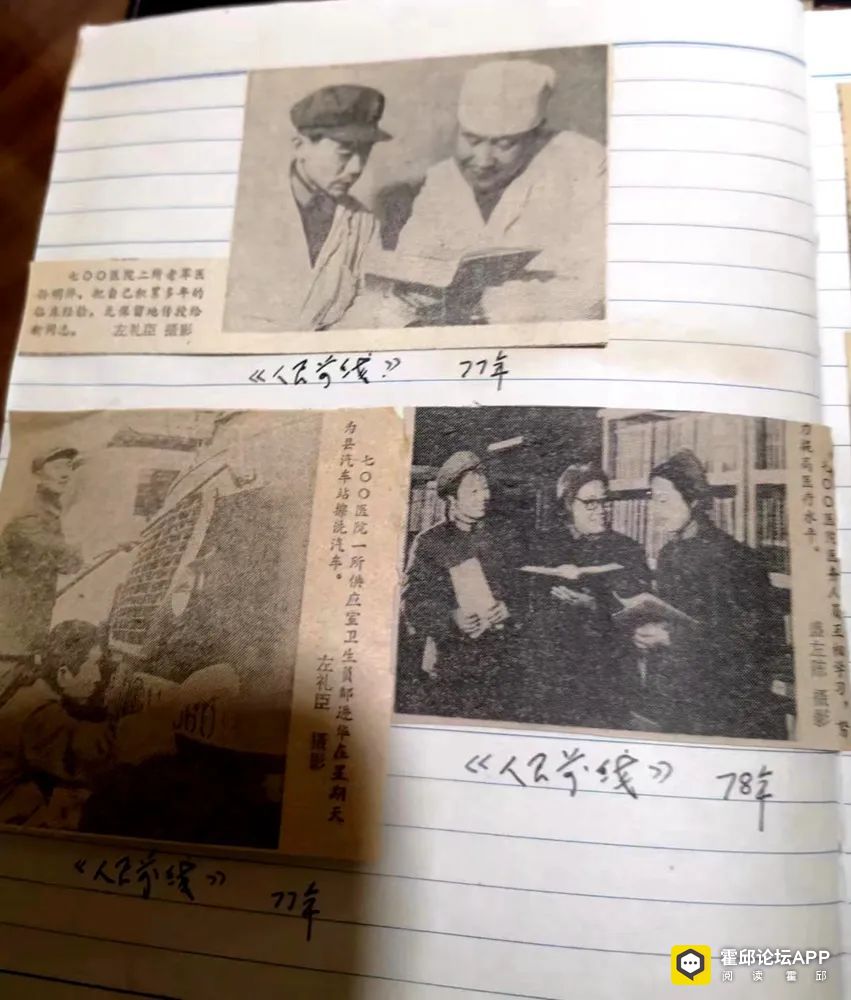 七〇〇医院二所老军医
孙明仲，把自己积累多年的
临床经验，无保留地传授给
新同志。 左礼臣 摄影
《人民前线》 77年
七〇〇医院一所供应室卫生员郜进华在星期天
为县汽车站擦洗汽车。
左礼臣 摄影
《人民前线》 77年
七〇〇医院医务人员互相学习，
为提高医疗水平。
摄影
《人民前线》 78年
霍邱论坛APP
阅读霍邱